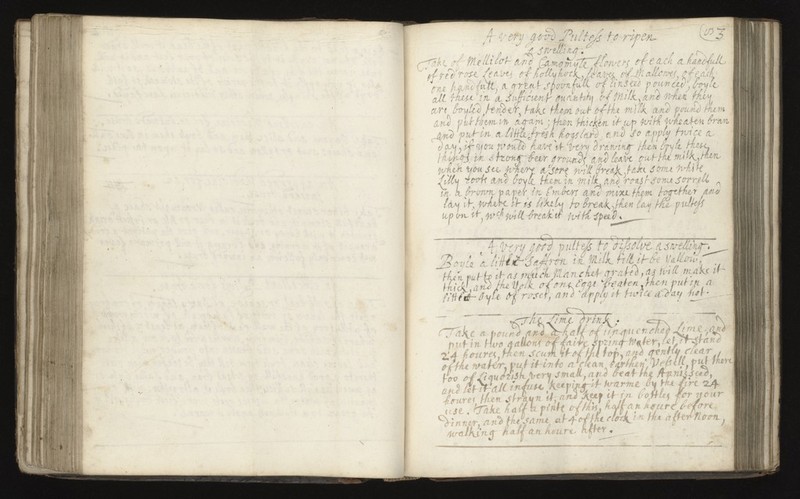 A very good Pultess to ripen 93
a swelling.
Take of Mellilot and Camomyle flowers of each a handfull
of red rose leaves of hollyhock, leaves of Mallowes, of each
one handfull, a great spoonfull of linseed pounced, boyle
all these in a sufficient quantity of Milk, and when they
are boyled tender, take them out of the milk and pound them
and put them in again; then thicken it up with wheaten bran
and put in a little fresh hogslard and so apply twice a
day, if you would have it very drawing then boyle these
things in strong beer grounds and leave out the milk, then
when you see where a sore will break, take some white
Lilly roots and boyle them in milk and roast some sorrell
in a brown paper in Embers and mixe them together and
lay it, where it is likely to break, then lay the pultess
upon it, wch will break it with speed.
A very good pultess to dissolve a swelling.
Boyle a little Saffron in Milk till it be yallow,
then put to it as much Manchet grated, as will make it
thick, and the yolk of one Egge beaten, then put in a
little oyle of roses, and apply it twice a day hot.
The Lime drink:
Take a pound and a half of unquenched Lime, and
put in two gallons of faire spring water, let it stand
24 houres, then scum it of the top, and gently clear
of the water, put it into a clean Earthen Vessell, put there
too of Liquorish very small, and beat the Anniseed,
and let it all infuse keeping it warme by the fire 24
houres, then strayn it, and keep it in bottles for your
use. Take half a pinte of this, half an houre before
dinner, and the same at 4 of the clock in the after Noon,
walking half an houre after.